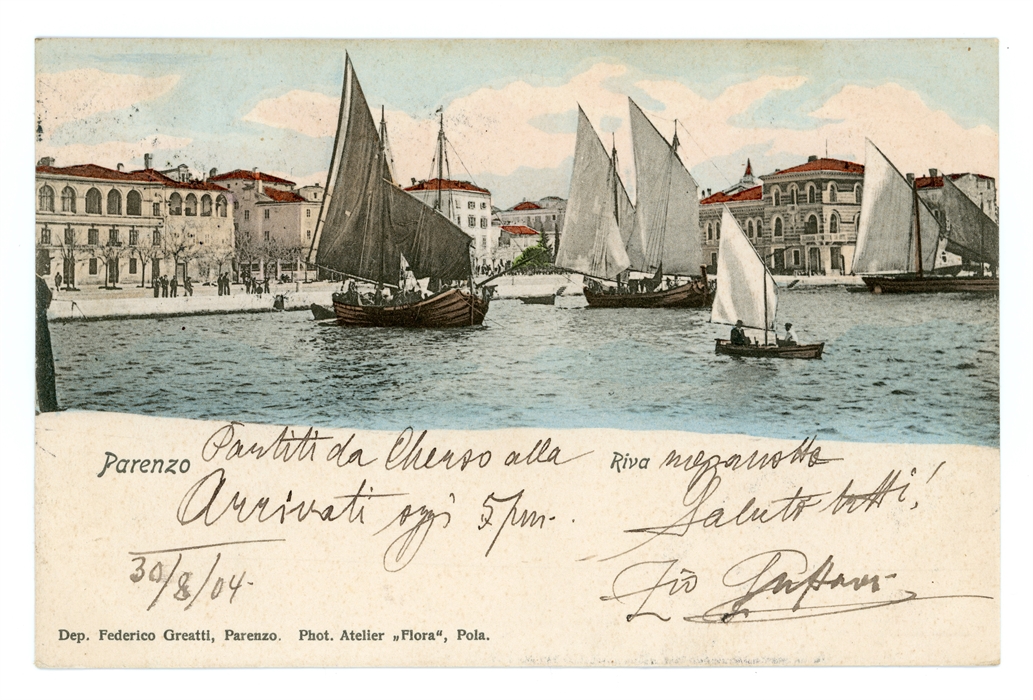 Parenzo Partiti da Cherso alla Riva mezanotte
Arrivati oggi 5 pm.
Saluto tutti!
30/8/04
Zio Gustavo
Dep. Federico Greatti, Parenzo. Phot. Atelier „Flora“, Pola.